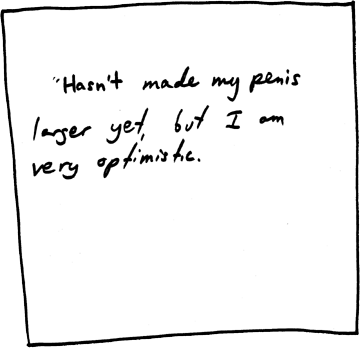 "Hasn't made my penis
larger yet, but I am
very optimistic.